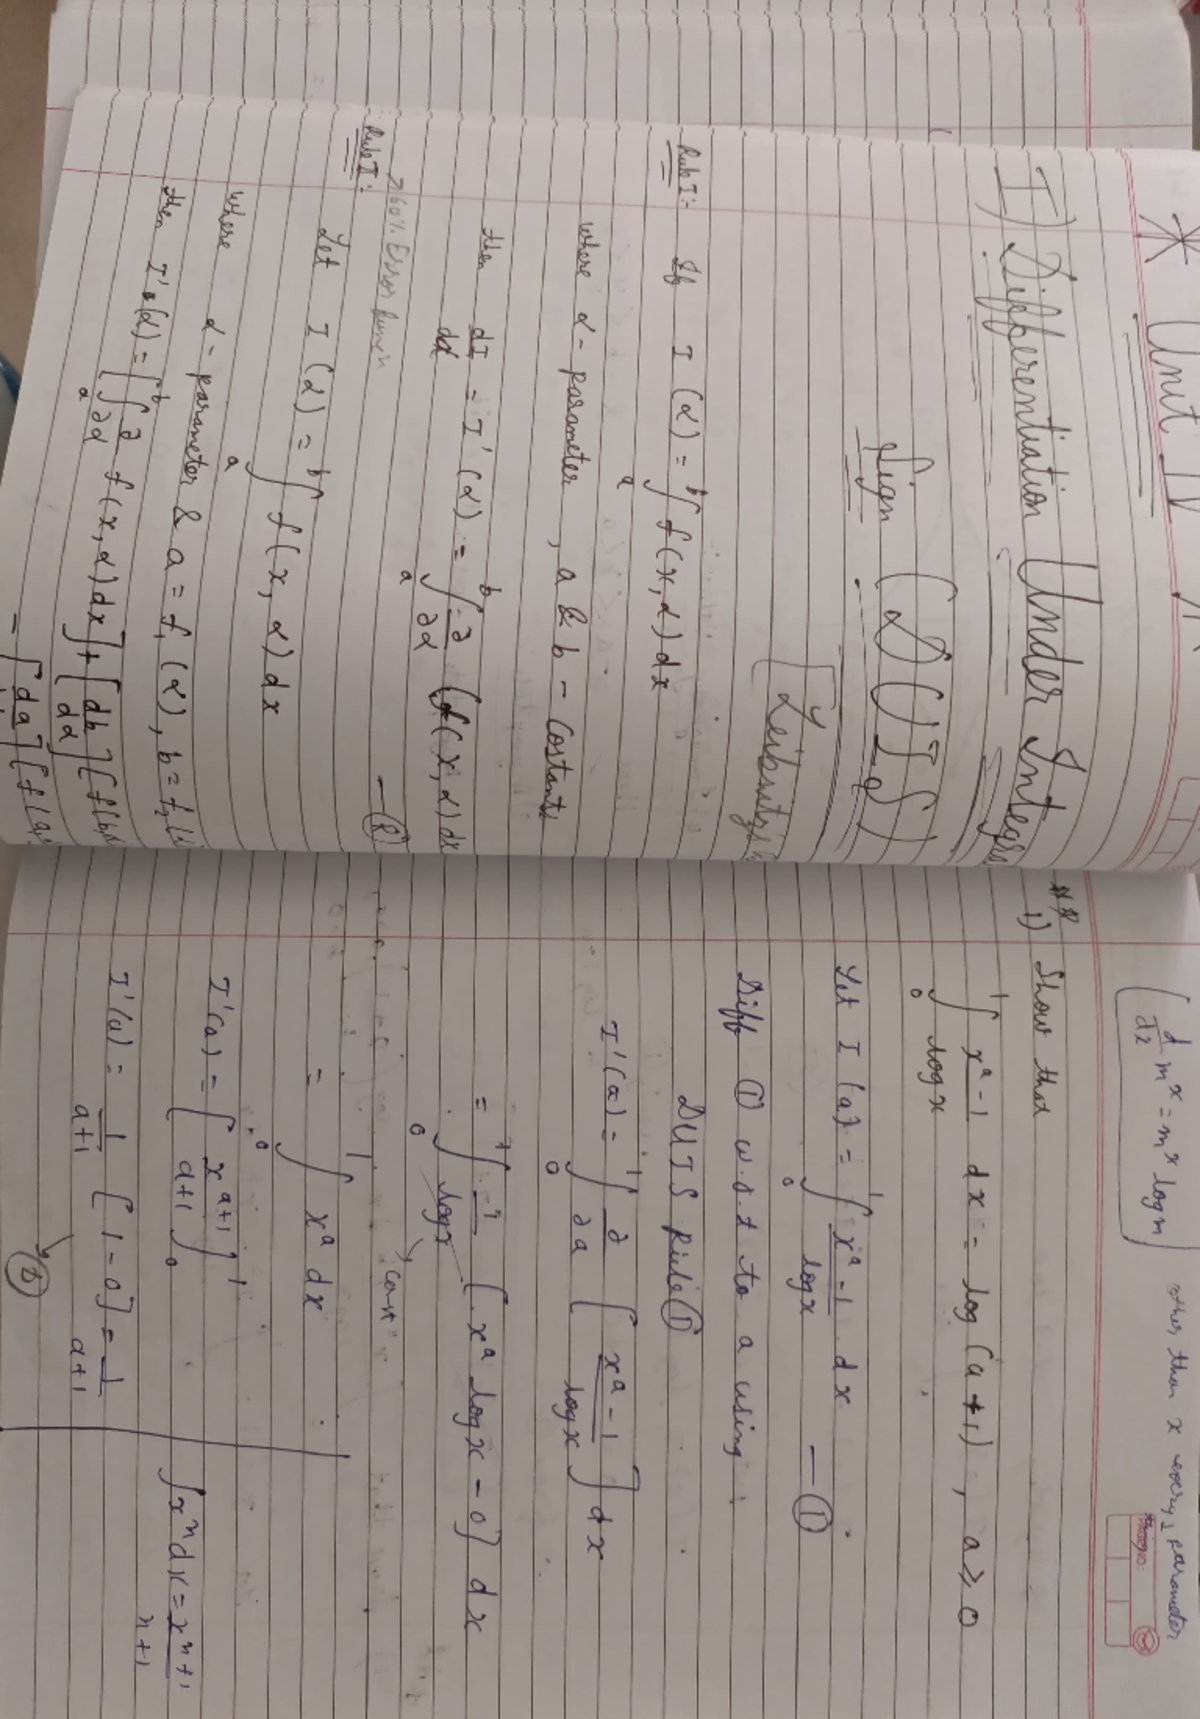 * Unit IV
I) Differentiation Under Integral
Sign (DUIS)
[Leibnitz's
Rule I:- If I (α) = ᵇ∫ₐ f(x, α) dx
where α - parameter, a & b - Costants
then dI/dα = I' (α) = ᵇ∫ₐ ∂/∂α (f(x, α) dx
—(R)
>60% Error
Rule II:
Let I (α) = ᵇ∫ₐ f(x, α) dx
where α - parameter & a = f₁ (α), b = f₂(
then I'(α) = [ᵇ∫ₐ ∂/∂α f(x, α) dx] + [db/dα] [f(b,
= [da/ ] [f(a,
[d/dx mˣ = mˣ log m]
other than x every parameter
1) Show that
¹∫₀ xᵃ-1/log x dx = log (a+1), a ≥ 0
Let I (a) = ¹∫₀ xᵃ-1/log x . dx —①
Diff ① w.r.t to a using
DUIS Rule ①
I'(a) = ¹∫₀ ∂/∂a [xᵃ-1/log x] dx
= ¹∫₀ 1/log x [xᵃ log x - 0] dx
const
= ¹∫₀ xᵃ dx
I'(a) = [xᵃ⁺¹/a+1]¹₀
∫xⁿ dx = xⁿ⁺¹/n+1
I'(a) = 1/a+1 [1-0] = 1/a+1
②